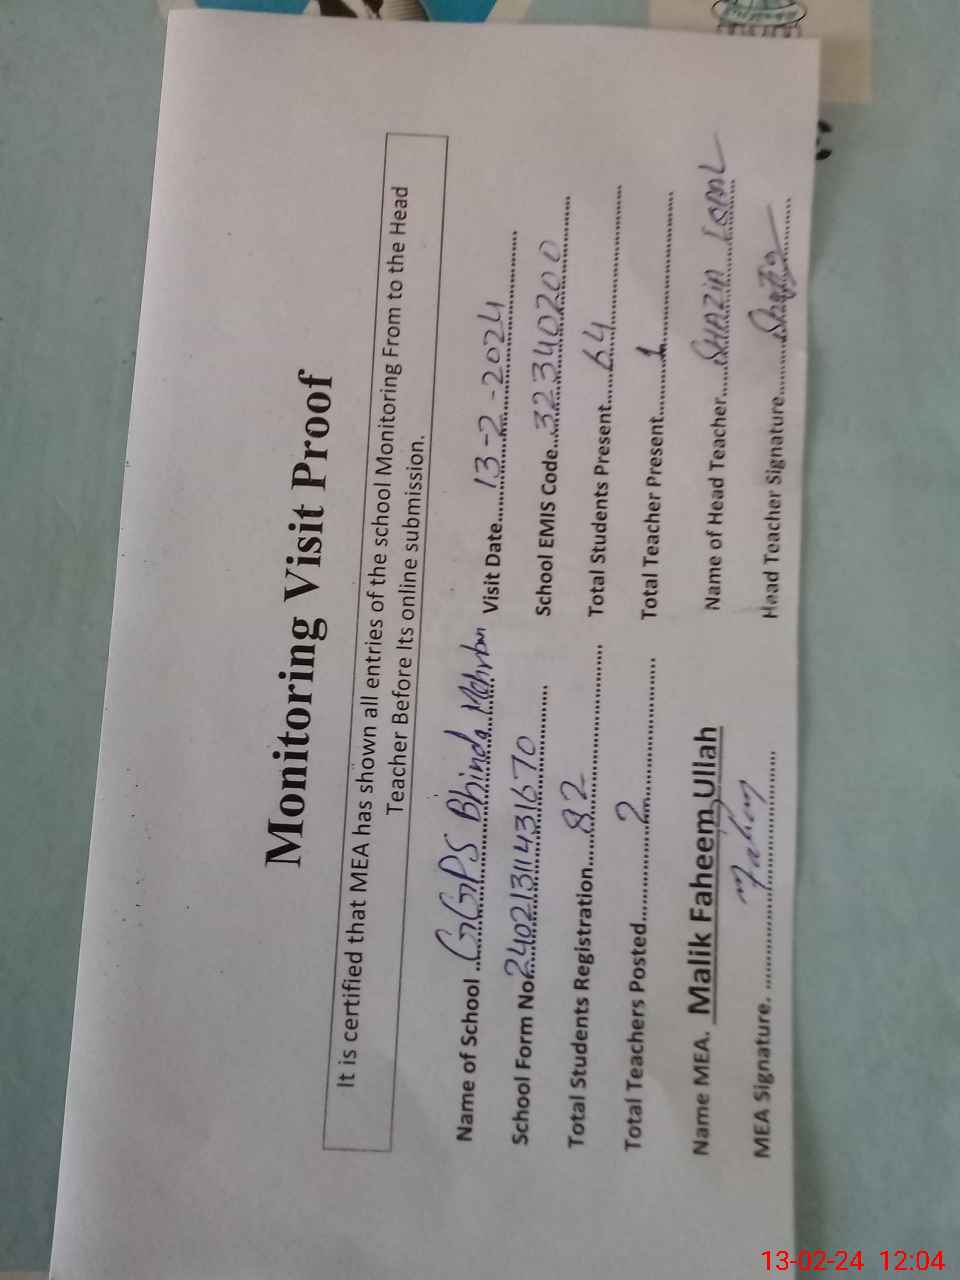 Monitoring Visit Proof
It is certified that MEA has shown all entries of the school Monitoring From to the Head
Teacher Before Its online submission.
Name of School ....GGPS Bhinda Mehrban Visit Date.....13-2-2024
School Form No.240213111431670 School EMIS Code...32340200
Total Students Registration.....82 Total Students Present.....64
Total Teachers Posted.....2 Total Teacher Present.....1
Name MEA. Malik Faheem Ullah Name of Head Teacher.....SHAZIA
MEA Signature. Faheem Head Teacher Signature.....
13-02-24 12:04